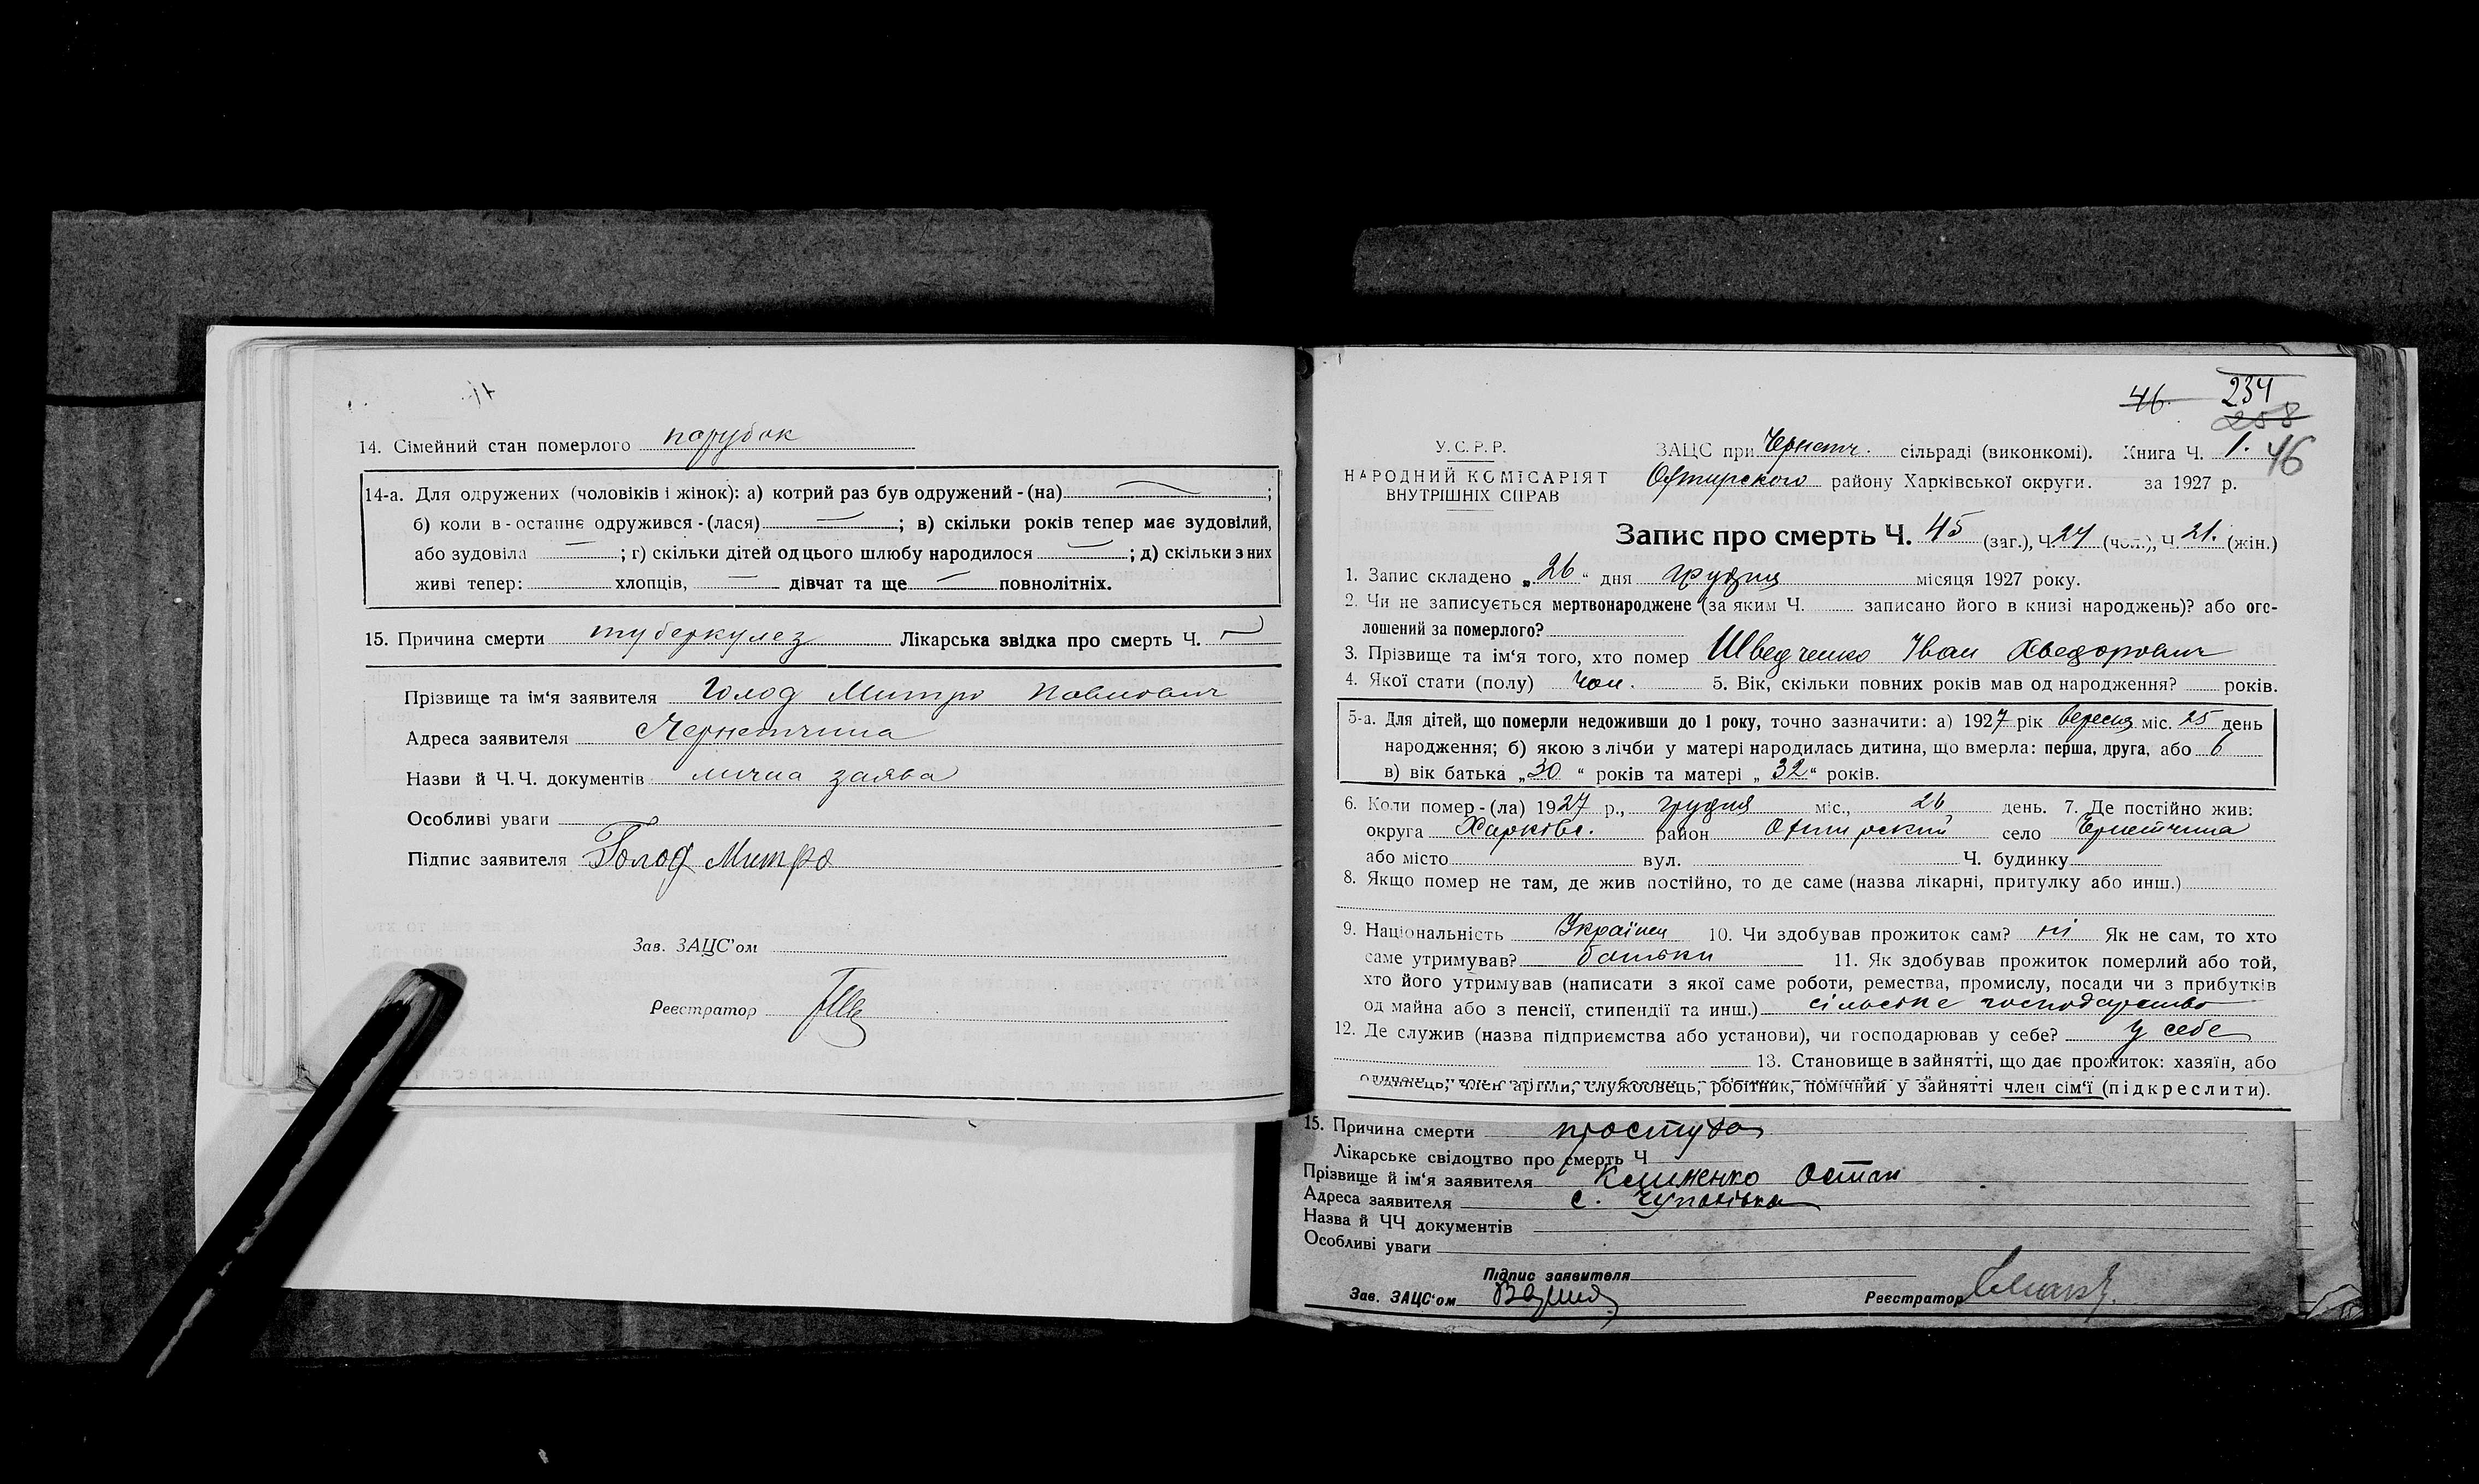 14. Сімейний стан померлого парубок
14-а. Для одружених (чоловіків і жінок): а) котрий раз був одружений - (на) — ;
б) коли в - останнє одружився - (лася) — ; в) скільки років тепер має зудовілий,
або зудовіла — ; г) скільки дітей од цього шлюбу народилося — ; д) скільки з них
живі тепер: хлопців, — дівчат та ще — повнолітніх.
15. Причина смерти туберкулез Лікарська звідка про смерть Ч. —
Прізвище та ім'я заявителя Голод Митро Павлович
Адреса заявителя Чернетчина
Назви й Ч.Ч. документів лична заява
Особливі уваги
Підпис заявителя Голод Митро
Зав. ЗАЦС'ом
Реєстратор
46 234
258
У.С.Р.Р.
НАРОДНИЙ КОМІСАРІЯТ
ВНУТРІШНІХ СПРАВ
ЗАЦС при Чернетч. сільраді (виконкомі). Книга Ч. 1. 46
Охтирского району Харківської округи. за 1927 р.
Запис про смерть Ч. 45 (заг.), Ч. 24 (чол.), Ч. 21. (жін.)
1. Запис складено „26“ дня грудня місяця 1927 року.
2. Чи не записується мертвонароджене (за яким Ч. записано його в книзі народжень)? або ого-
лошений за померлого?
3. Прізвище та ім'я того, хто помер Шведченко Іван Хведорович
4. Якої стати (полу) Чол. 5. Вік, скільки повних років мав од народження? років.
5-а. Для дітей, що померли недоживши до 1 року, точно зазначити: а) 1927 рік вересня міс. 25 день
народження; б) якою з лічби у матері народилась дитина, що вмерла: перша, друга, або 6
в) вік батька „30“ років та матері „32“ років.
6. Коли помер - (ла) 1927 р., грудня міс., 26 день. 7. Де постійно жив:
округа Харківс. район Охтирский село Чернетчина
або місто вул. Ч. будинку
8. Якщо помер не там, де жив постійно, то де саме (назва лікарні, притулку або инш.)
9. Національність Українец 10. Чи здобував прожиток сам? ні Як не сам, то хто
саме утримував? батьки 11. Як здобував прожиток померлий або той,
хто його утримував (написати з якої саме роботи, ремества, промислу, посади чи з прибутків
од майна або з пенсії, стипендії та инш.) сільське господарство
12. Де служив (назва підприємства або установи), чи господарював у себе? у себе
13. Становище в зайнятті, що дає прожиток: хазяїн, або
одинець, член артіли, службовець, робітник, помічний у зайнятті член сім'ї (підкреслити).
15. Причина смерти простуда
Лікарське свідоцтво про смерть Ч
Прізвище й ім'я заявителя Клименко Остап
Адреса заявителя с. Чупахівка
Назва й ЧЧ документів
Особливі уваги
Підпис заявителя
Зав. ЗАЦС'ом Реєстратор